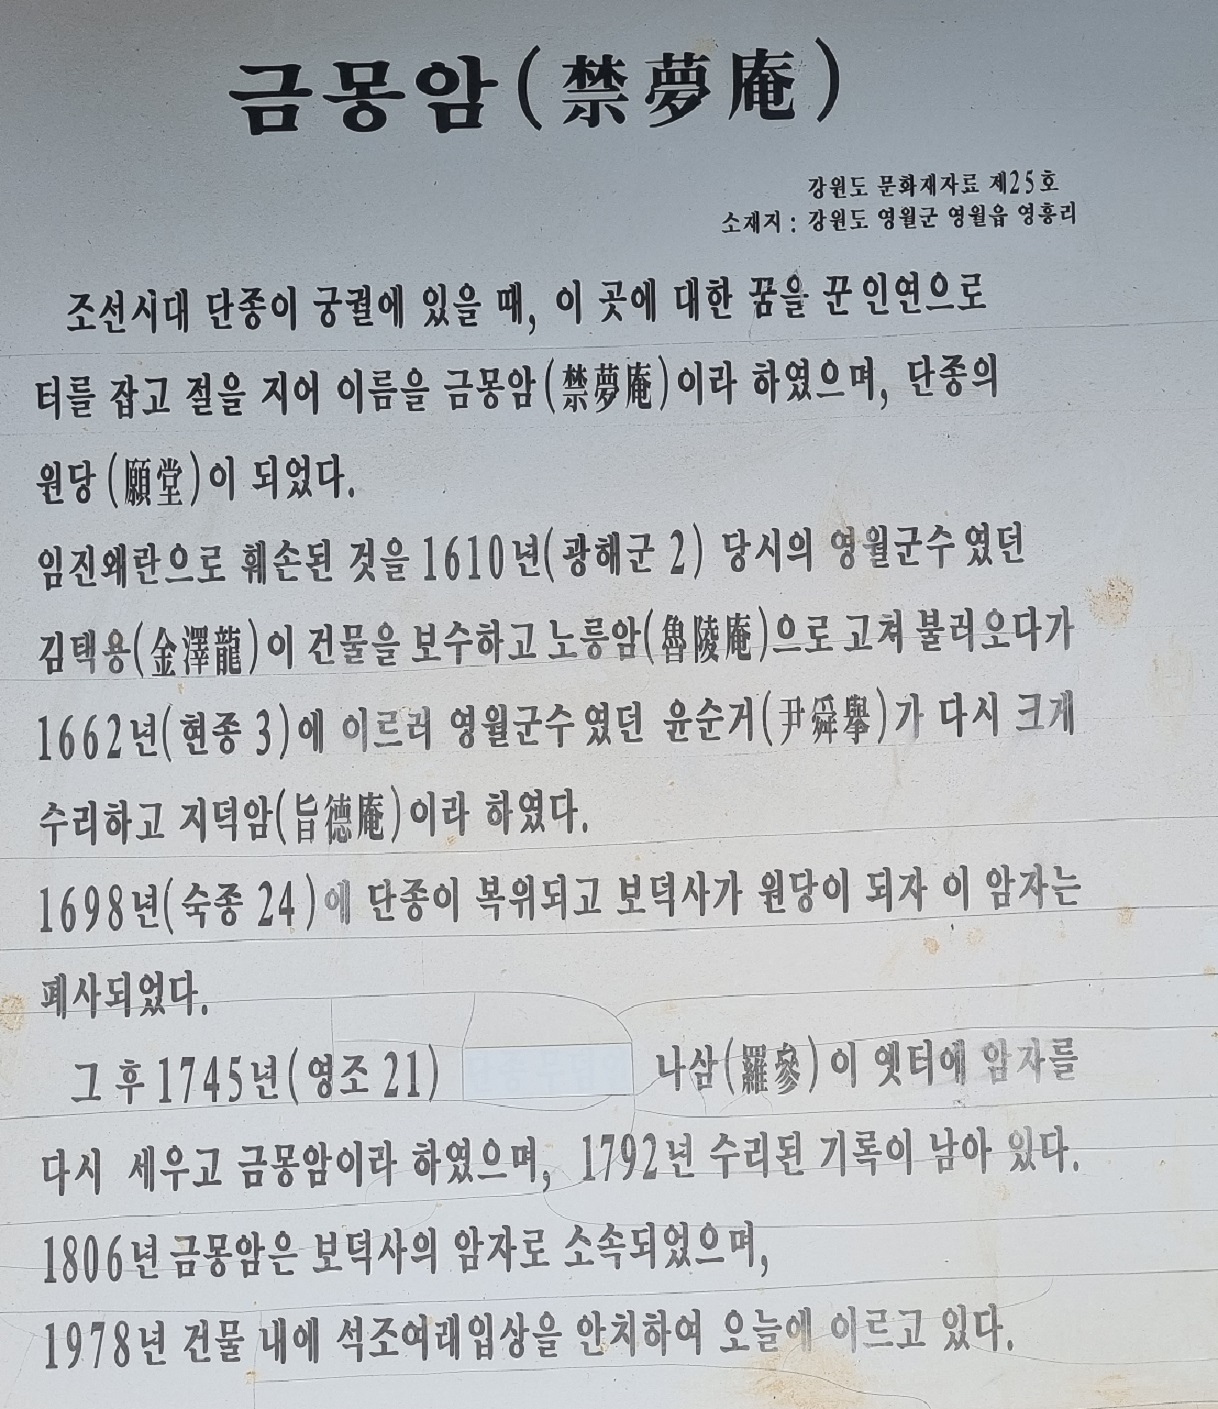 금몽암(禁夢庵)
강원도 문화재자료 제25호
소재지 : 강원도 영월군 영월읍 영흥리
조선시대 단종이 궁궐에 있을 때, 이 곳에 대한 꿈을 꾼 인연으로
터를 잡고 절을 지어 이름을 금몽암(禁夢庵)이라 하였으며, 단종의
원당(願堂)이 되었다.
임진왜란으로 훼손된 것을 1610년(광해군 2) 당시의 영월군수였던
김택용(金澤龍)이 건물을 보수하고 노릉암(魯陵庵)으로 고쳐 불러오다가
1662년(현종 3)에 이르러 영월군수였던 윤순거(尹舜擧)가 다시 크게
수리하고 지덕암(旨德庵)이라 하였다.
1698년(숙종 24)에 단종이 복위되고 보덕사가 원당이 되자 이 암자는
폐사되었다.
그 후 1745년(영조 21) 나삼(羅參)이 옛터에 암자를
다시 세우고 금몽암이라 하였으며, 1792년 수리된 기록이 남아 있다.
1806년 금몽암은 보덕사의 암자로 소속되었으며,
1978년 건물 내에 석조여래입상을 안치하여 오늘에 이르고 있다.